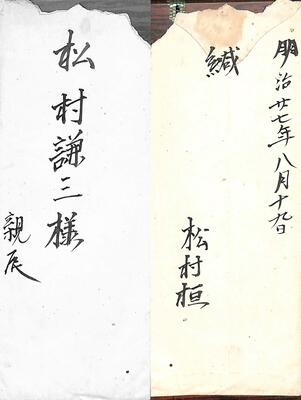 松村謙三様
親展
明治廿七年八月十九日
緘
松村桓